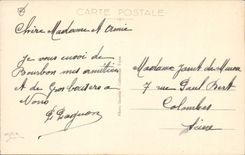 CARTE POSTALE
Chère Madame et Amie
Je vous envoi de
Bourbon mes amitiés
et de Gros baisers a
Vous
Madame
7 rue Paul Bert
Colombes
Seine